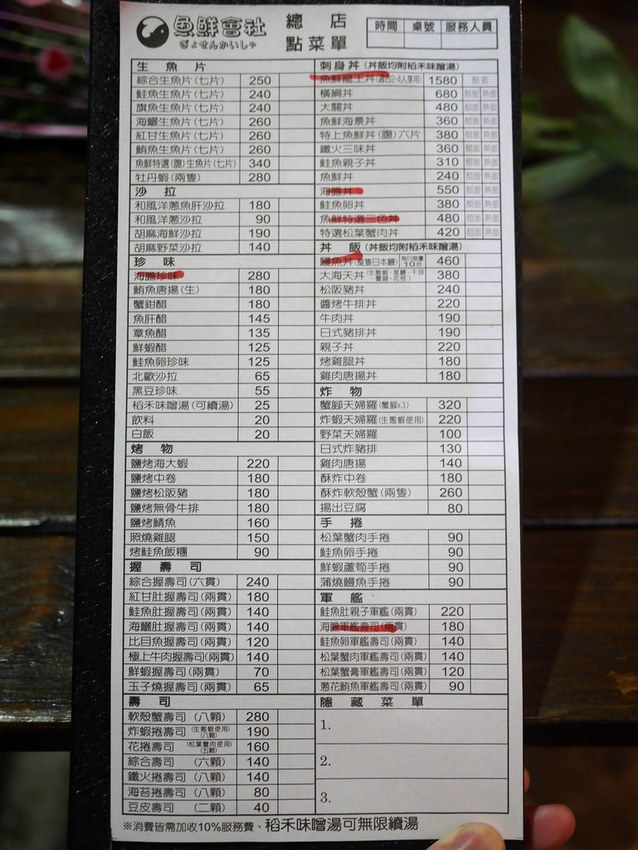 魚鮮會社
ぎょせんかいしゃ
總店
點菜單
時間 桌號 服務人員
生魚片
綜合生魚片(七片) 250
鮭魚生魚片(七片) 240
旗魚生魚片(七片) 240
海鱺生魚片(七片) 260
紅甘生魚片(七片) 260
鮪魚生魚片(七片) 260
魚鮮特選(腹)生魚片(七片) 340
牡丹蝦(兩隻) 280
沙拉
和風洋蔥魚肝沙拉 180
和風洋蔥沙拉 90
胡麻海鮮沙拉 190
胡麻野菜沙拉 140
珍味
海膽珍味 280
鮪魚唐揚(生) 180
蟹鉗醋 180
魚肝醋 145
章魚醋 135
鮮蝦醋 125
鮭魚卵珍味 125
北歐沙拉 65
黑豆珍味 55
稻禾味噌湯(可續湯) 25
飲料 20
白飯 20
烤物
鹽烤海大蝦 220
鹽烤中卷 180
鹽烤松阪豬 180
鹽烤無骨牛排 180
鹽烤鯖魚 160
照燒雞腿 150
烤鮭魚飯糰 90
握壽司
綜合握壽司(六貫) 240
紅甘肚握壽司(兩貫) 180
鮭魚肚握壽司(兩貫) 140
海鱺肚握壽司(兩貫) 140
比目魚握壽司(兩貫) 120
極上牛肉握壽司(兩貫) 140
鮮蝦握壽司(兩貫) 70
玉子燒握壽司(兩貫) 65
壽司
軟殼蟹壽司(八顆) 280
炸蝦捲壽司(生態蝦使用)(八顆) 190
花捲壽司(松葉蟹肉使用)(五顆) 160
綜合壽司(六顆) 140
鐵火捲壽司(八顆) 140
海苔捲壽司(八顆) 80
豆皮壽司(二顆) 40
刺身丼(丼飯均附稻禾味噌湯)
魚鮮龍王丼 1580
橫綱丼 680
大關丼 480
魚鮮海景丼 360
特上魚鮮丼(腹)六片 380
鐵火三味丼 360
鮭魚親子丼 310
魚鮮丼 240
海膽丼 550
鮭魚卵丼 380
魚鮮特選三色丼 480
特選松葉蟹肉丼 420
丼飯(丼飯均附稻禾味噌湯)
鰻魚丼 460
大海天丼 380
松阪豬丼 240
醬烤牛排丼 220
牛肉丼 190
日式豬排丼 190
親子丼 220
烤雞腿丼 180
雞肉唐揚丼 180
炸物
蟹腳天婦羅(蟹腳x3) 320
炸蝦天婦羅(生態蝦使用) 220
野菜天婦羅 100
日式炸豬排 130
雞肉唐揚 140
酥炸中卷 180
酥炸軟殼蟹(兩隻) 260
揚出豆腐 80
手捲
松葉蟹肉手捲 90
鮭魚卵手捲 90
鮮蝦蘆筍手捲 90
蒲燒鰻魚手捲 90
軍艦
鮭魚肚親子軍艦(兩貫) 220
海膽軍艦壽司(兩貫) 180
鮭魚卵軍艦壽司(兩貫) 140
松葉蟹肉軍艦壽司(兩貫) 140
松葉蟹膏軍艦壽司(兩貫) 120
蔥花鮪魚軍艦壽司(兩貫) 90
隱藏菜單
1.
2.
3.
※消費皆需加收10%服務費、稻禾味噌湯可無限續湯